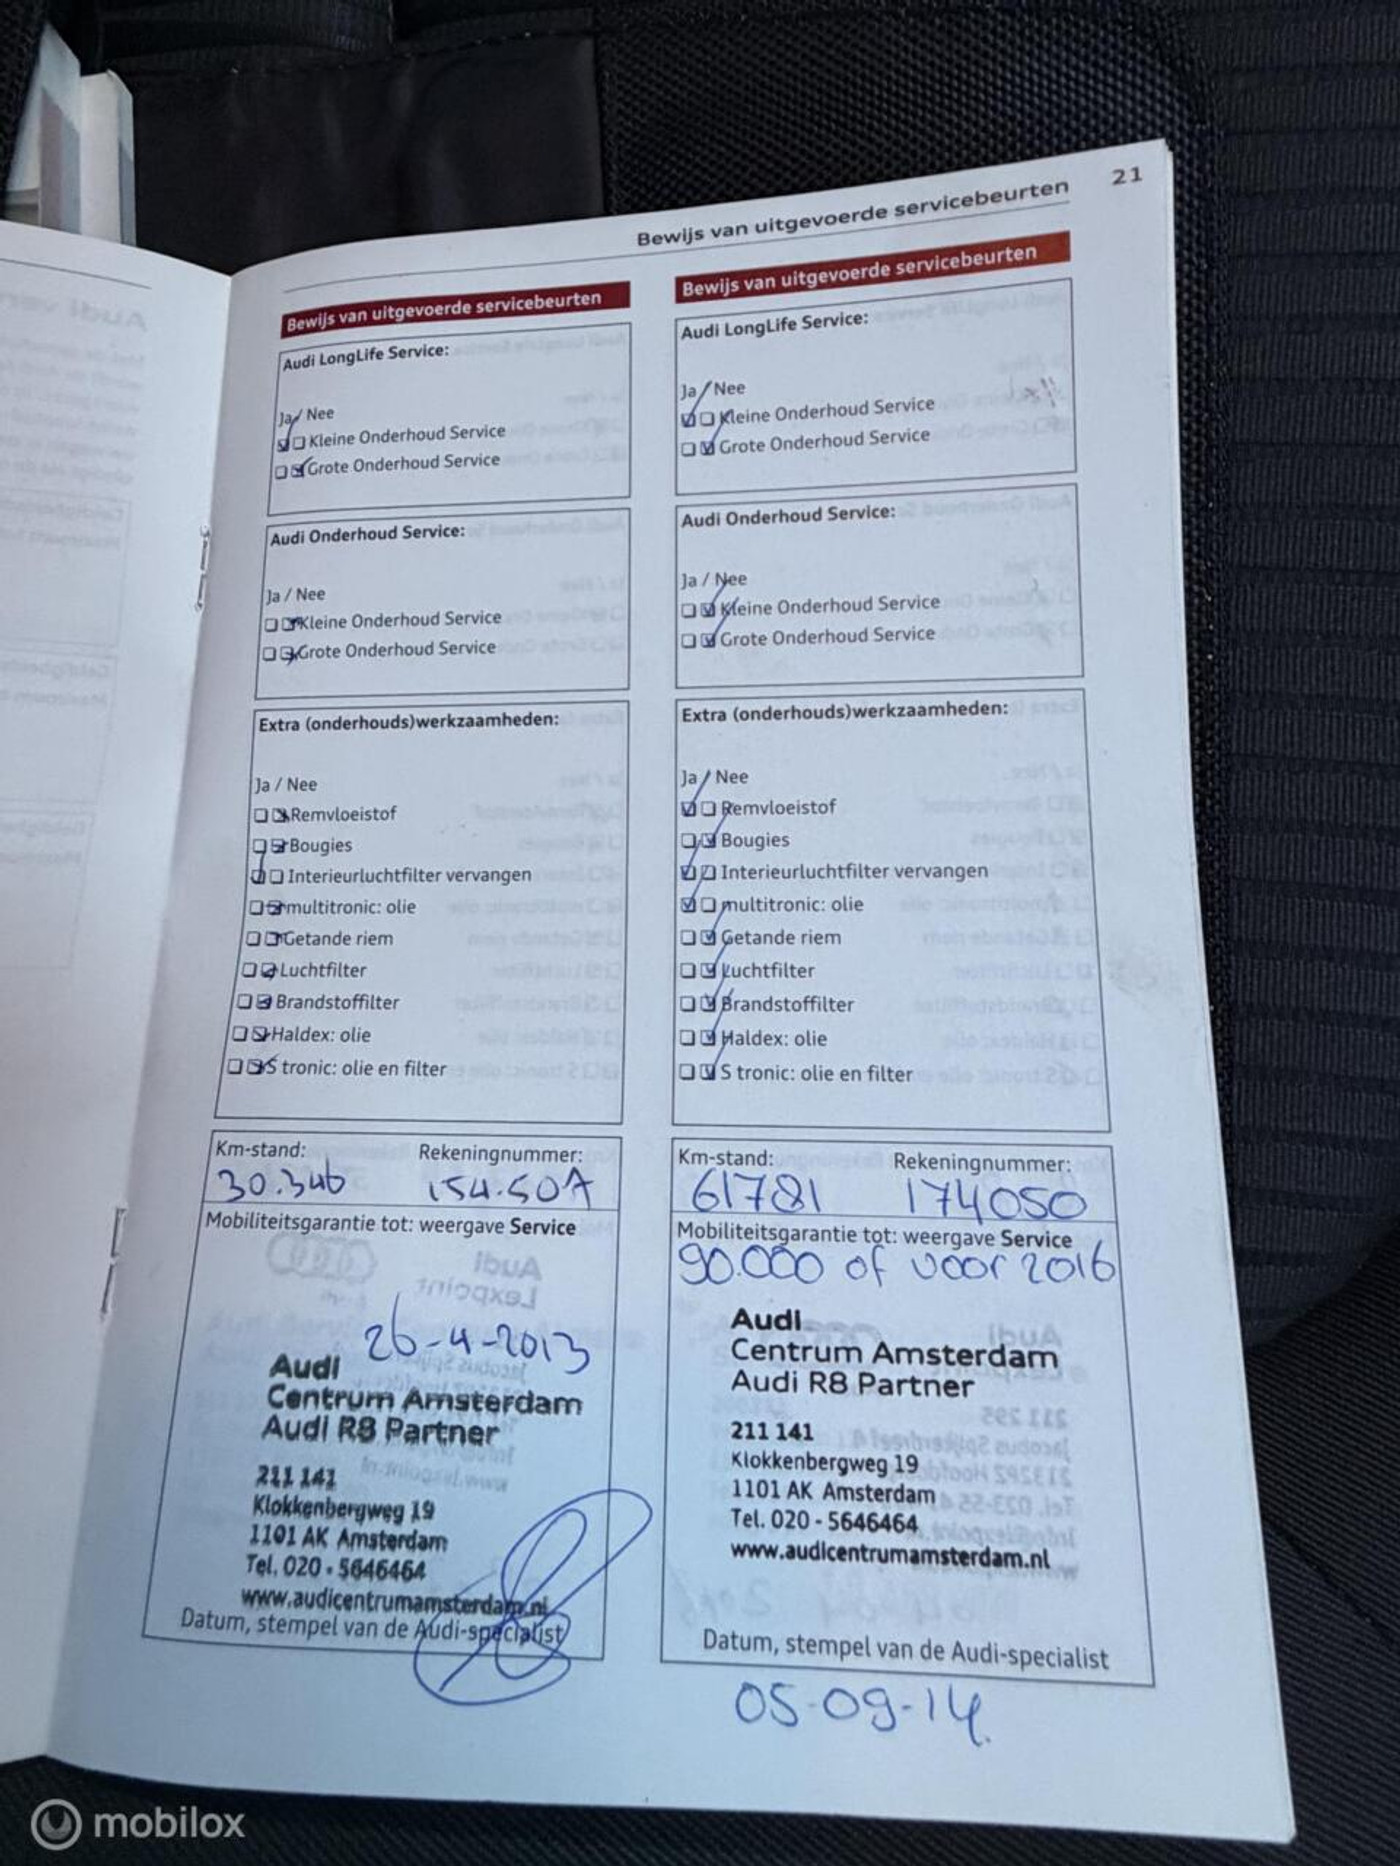 21
Bewijs van uitgevoerde servicebeurten
Bewijs van uitgevoerde servicebeurten
Audi LongLife Service:
Ja / Nee
Kleine Onderhoud Service
Grote Onderhoud Service
Audi Onderhoud Service:
Ja / Nee
Kleine Onderhoud Service
Grote Onderhoud Service
Extra (onderhouds)werkzaamheden:
Ja / Nee
Remvloeistof
Bougies
Interieurluchtfilter vervangen
multitronic: olie
Getande riem
Luchtfilter
Brandstoffilter
Haldex: olie
S tronic: olie en filter
Km-stand: Rekeningnummer:
30.346 154.507
Mobiliteitsgarantie tot: weergave Service
26-4-2013
Audi
Centrum Amsterdam
Audi R8 Partner
211 141
Klokkenbergweg 19
1101 AK Amsterdam
Tel. 020 - 5646464
www.audicentrumamsterdam.nl
Datum, stempel van de Audi-specialist
Bewijs van uitgevoerde servicebeurten
Audi LongLife Service:
Ja / Nee
Kleine Onderhoud Service
Grote Onderhoud Service
Audi Onderhoud Service:
Ja / Nee
Kleine Onderhoud Service
Grote Onderhoud Service
Extra (onderhouds)werkzaamheden:
Ja / Nee
Remvloeistof
Bougies
Interieurluchtfilter vervangen
multitronic: olie
Getande riem
Luchtfilter
Brandstoffilter
Haldex: olie
S tronic: olie en filter
Km-stand: Rekeningnummer:
61781 174050
Mobiliteitsgarantie tot: weergave Service
90.000 of voor 2016
Audi
Centrum Amsterdam
Audi R8 Partner
211 141
Klokkenbergweg 19
1101 AK Amsterdam
Tel. 020 - 5646464
www.audicentrumamsterdam.nl
Datum, stempel van de Audi-specialist
05-09-14.
mobilox